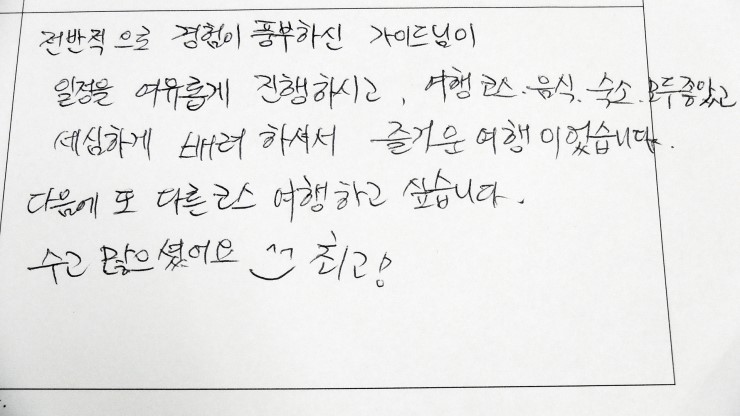 전반적으로 경험이 풍부하신 가이드님이
일정을 여유롭게 진행하시고, 여행코스.음식.숙소.모두좋았고
세심하게 배려 하셔서 즐거운 여행이었습니다.
다음에 또 다른코스 여행하고 싶습니다.
수고 많으셨어요 ^^ 최고!